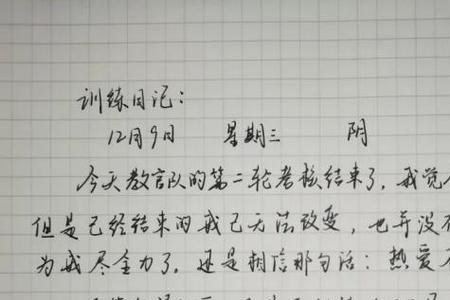 训练日记：
12月9日 星期三 阴
今天教官队的第二轮考核结束了，我觉
但是已经结束的我已无法改变，也并没
为我尽全力了，还是相信那句话：热爱